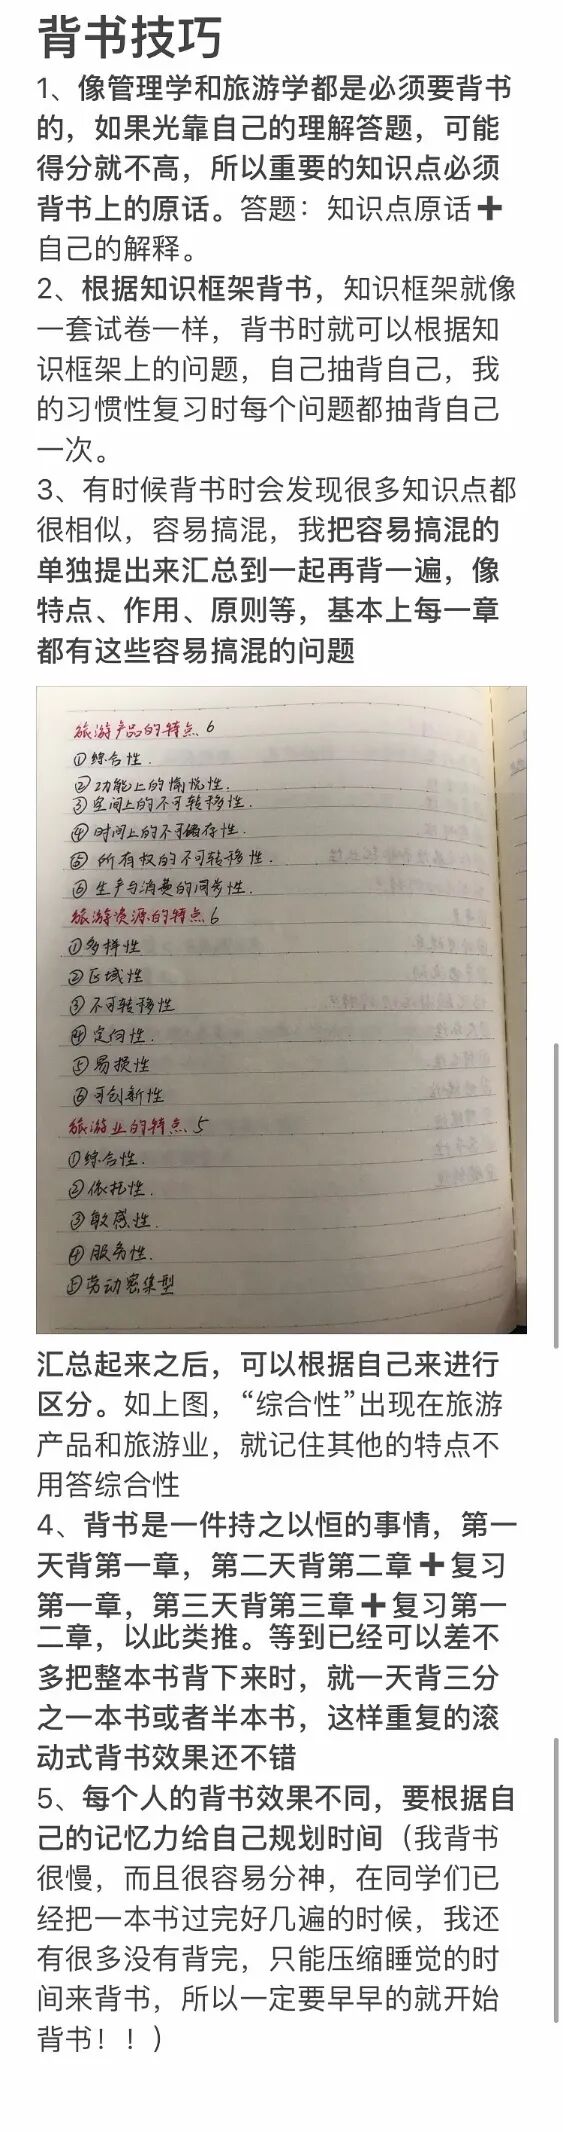 背书技巧
1、像管理学和旅游学都是必须要背书
的，如果光靠自己的理解答题，可能
得分就不高，所以重要的知识点必须
背书上的原话。答题：知识点原话➕
自己的解释。
2、根据知识框架背书，知识框架就像
一套试卷一样，背书时就可以根据知
识框架上的问题，自己抽背自己，我
的习惯性复习时每个问题都抽背自己
一次。
3、有时候背书时会发现很多知识点都
很相似，容易搞混，我把容易搞混的
单独提出来汇总到一起再背一遍，像
特点、作用、原则等，基本上每一章
都有这些容易搞混的问题
旅游产品的特点 6
①综合性.
②功能上的愉悦性.
③空间上的不可转移性.
④时间上的不可储存性.
⑤所有权的不可转移性.
⑥生产与消费的同步性.
旅游资源的特点 6
①多样性
②区域性
③不可转移性
④定向性.
⑤易损性
⑥可创新性
旅游业的特点 5
①综合性.
②依托性.
③敏感性.
④服务性.
⑤劳动密集型
汇总起来之后，可以根据自己来进行
区分。如上图，“综合性”出现在旅游
产品和旅游业，就记住其他的特点不
用答综合性
4、背书是一件持之以恒的事情，第一
天背第一章，第二天背第二章➕复习
第一章，第三天背第三章➕复习第一
二章，以此类推。等到已经可以差不
多把整本书背下来时，就一天背三分
之一本书或者半本书，这样重复的滚
动式背书效果还不错
5、每个人的背书效果不同，要根据自
己的记忆力给自己规划时间（我背书
很慢，而且很容易分神，在同学们已
经把一本书过完好几遍的时候，我还
有很多没有背完，只能压缩睡觉的时
间来背书，所以一定要早早的就开始
背书！！）